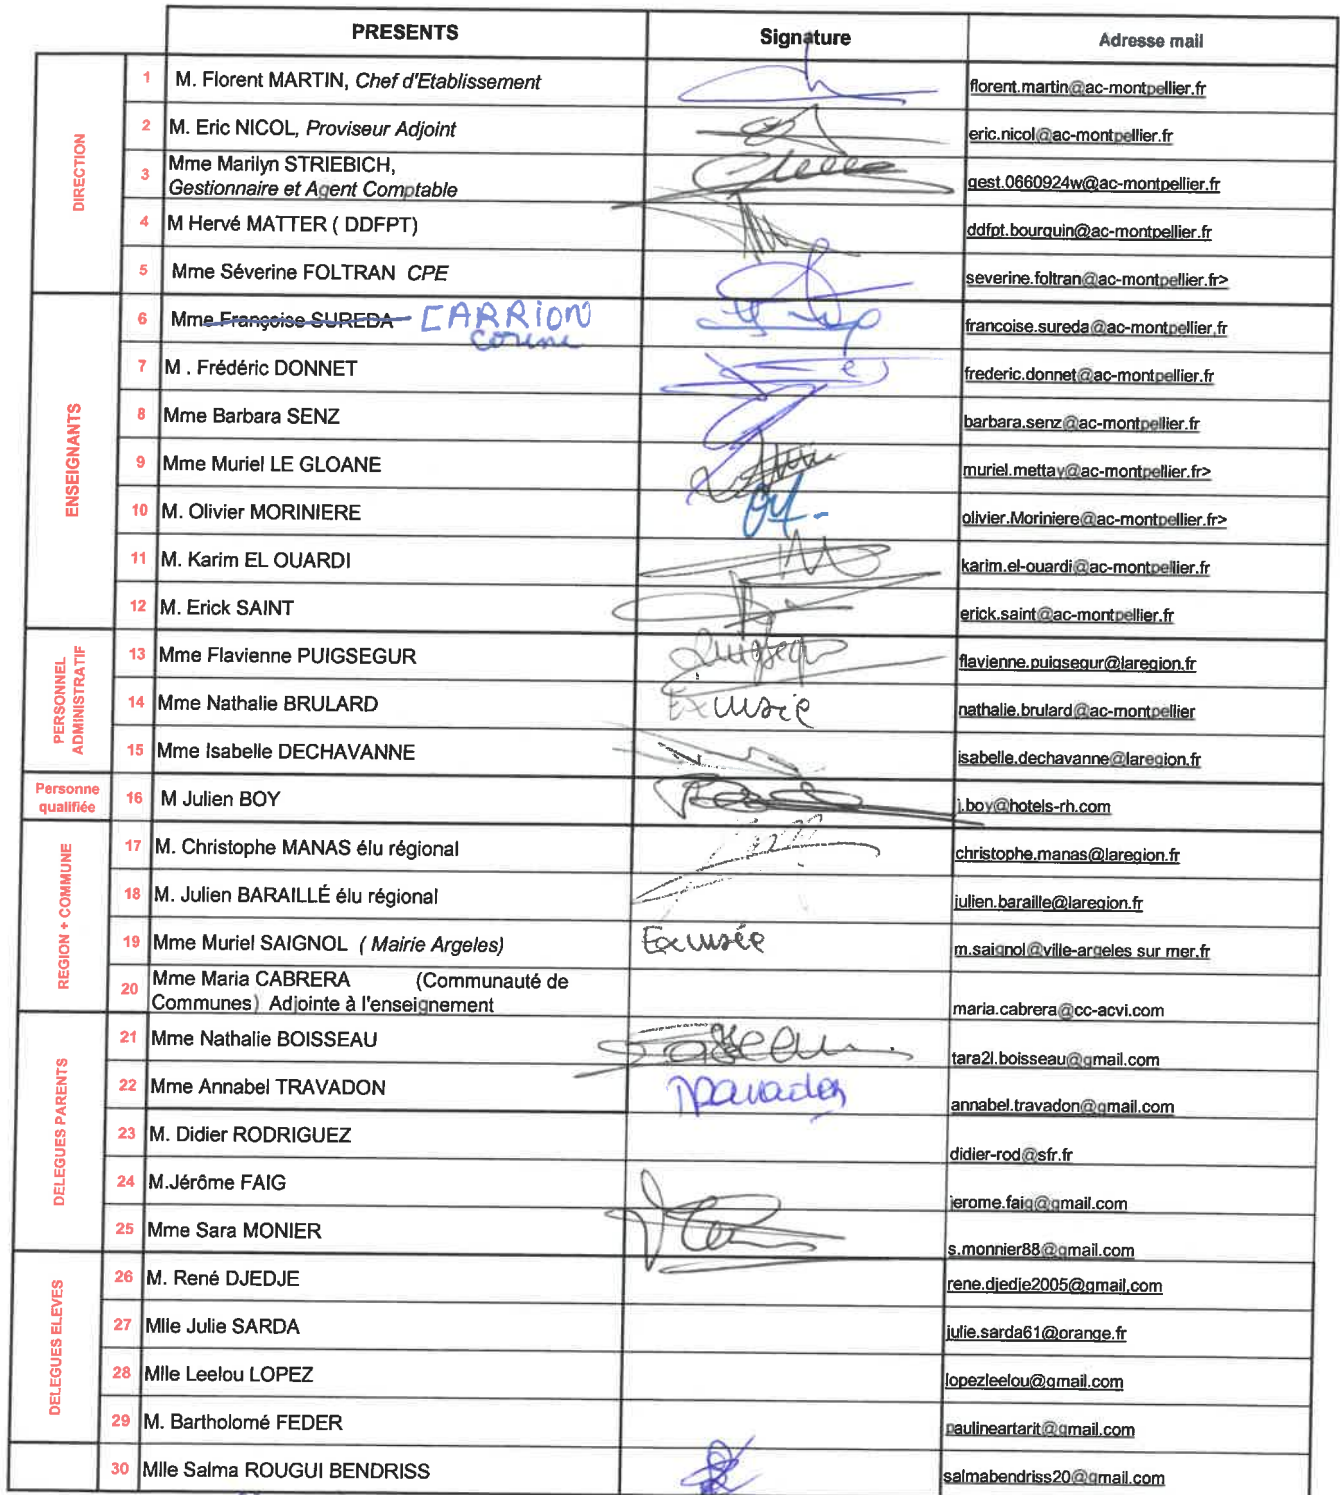 PRESENTS Signature Adresse mail
DIRECTION
1 M. Florent MARTIN, Chef d'Etablissement florent.martin@ac-montpellier.fr
2 M. Eric NICOL, Proviseur Adjoint eric.nicol@ac-montpellier.fr
3 Mme Marilyn STRIEBICH,
Gestionnaire et Agent Comptable gest.0660924w@ac-montpellier.fr
4 M Hervé MATTER ( DDFPT) ddfpt.bourquin@ac-montpellier.fr
5 Mme Séverine FOLTRAN CPE severine.foltran@ac-montpellier.fr>
ENSEIGNANTS
6 Mme Françoise SUREDA CARRION francoise.sureda@ac-montpellier,fr
7 M . Frédéric DONNET frederic.donnet@ac-montpellier.fr
8 Mme Barbara SENZ barbara.senz@ac-montpellier.fr
9 Mme Muriel LE GLOANE muriel.mettay@ac-montpellier.fr>
10 M. Olivier MORINIERE olivier.Moriniere@ac-montpellier.fr>
11 M. Karim EL OUARDI karim.el-ouardi@ac-montpellier.fr
12 M. Erick SAINT erick.saint@ac-montpellier.fr
PERSONNEL
ADMINISTRATIF
13 Mme Flavienne PUIGSEGUR Puigsegur flavienne.puigsegur@laregion.fr
14 Mme Nathalie BRULARD Excusée nathalie.brulard@ac-montpellier
15 Mme Isabelle DECHAVANNE isabelle.dechavanne@laregion.fr
Personne
qualifiée
16 M Julien BOY j.boy@hotels-rh.com
REGION + COMMUNE
17 M. Christophe MANAS élu régional christophe.manas@laregion.fr
18 M. Julien BARAILLÉ élu régional julien.baraille@laregion.fr
19 Mme Muriel SAIGNOL ( Mairie Argeles) Excusée m.saignol@ville-argeles sur mer.fr
20 Mme Maria CABRERA (Communauté de
Communes) Adjointe à l'enseignement maria.cabrera@cc-acvi.com
DELEGUES PARENTS
21 Mme Nathalie BOISSEAU tara2l.boisseau@gmail.com
22 Mme Annabel TRAVADON Travadon annabel.travadon@gmail.com
23 M. Didier RODRIGUEZ didier-rod@sfr.fr
24 M.Jérôme FAIG jerome.faig@gmail.com
25 Mme Sara MONIER s.monnier88@gmail.com
DELEGUES ELEVES
26 M. René DJEDJE rene.djedje2005@gmail,com
27 Mlle Julie SARDA julie.sarda61@orange.fr
28 Mlle Leelou LOPEZ lopezleelou@gmail.com
29 M. Bartholomé FEDER paulineartarit@gmail.com
30 Mlle Salma ROUGUI BENDRISS salmabendriss20@gmail.com